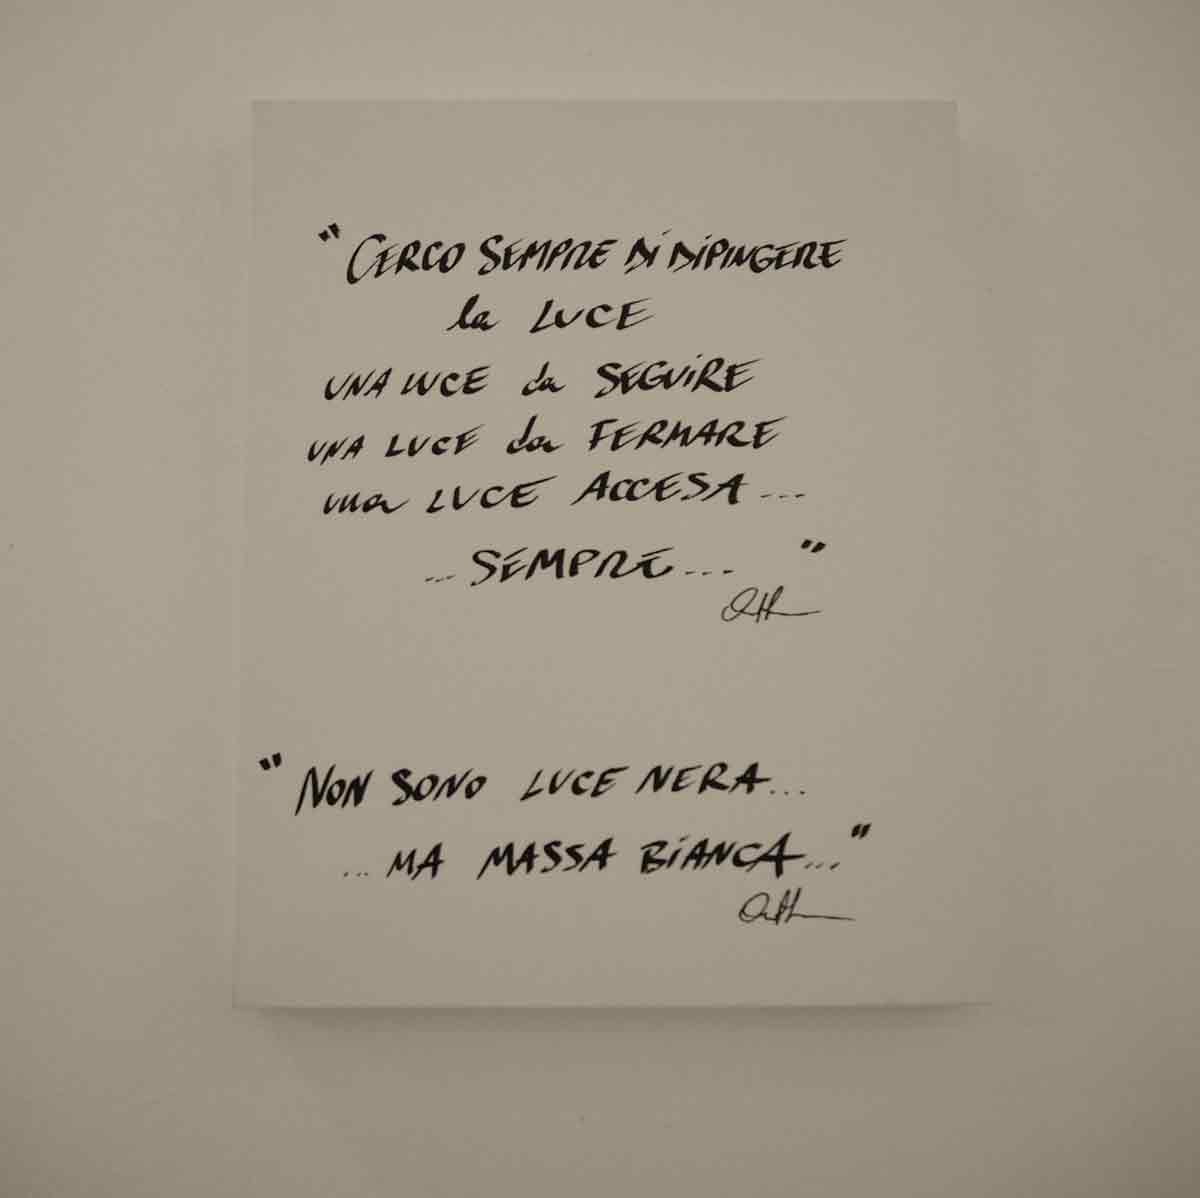 "CERCO SEMPRE DI DIPINGERE
la LUCE
UNA LUCE da SEGUIRE
UNA LUCE da FERMARE
una LUCE ACCESA...
...SEMPRE..."
"NON SONO LUCE NERA...
...MA MASSA BIANCA..."